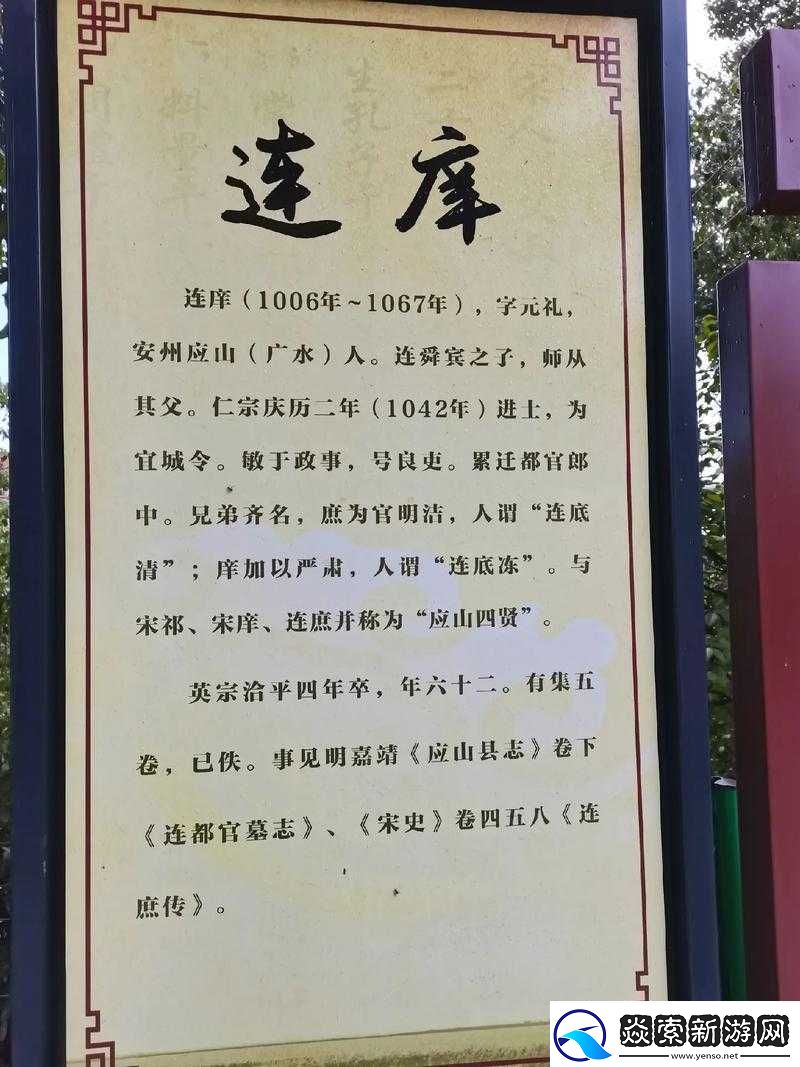 连庠
连庠（1006年~1067年），字元礼，
安州应山（广水）人。连舜宾之子，师从
其父。仁宗庆历二年（1042年）进士，为
宜城令。敏于政事，号良吏。累迁都官郎
中。兄弟齐名，庶为官明洁，人谓“连底
清”；庠加以严肃，人谓“连底冻”。与
宋祁、宋庠、连庶并称为“应山四贤”。
英宗治平四年卒，年六十二。有集五
卷，已佚。事见明嘉靖《应山县志》卷下
《连都官墓志》、《宋史》卷四五八《连
庶传》。
焱索新游网
www.yenso.net